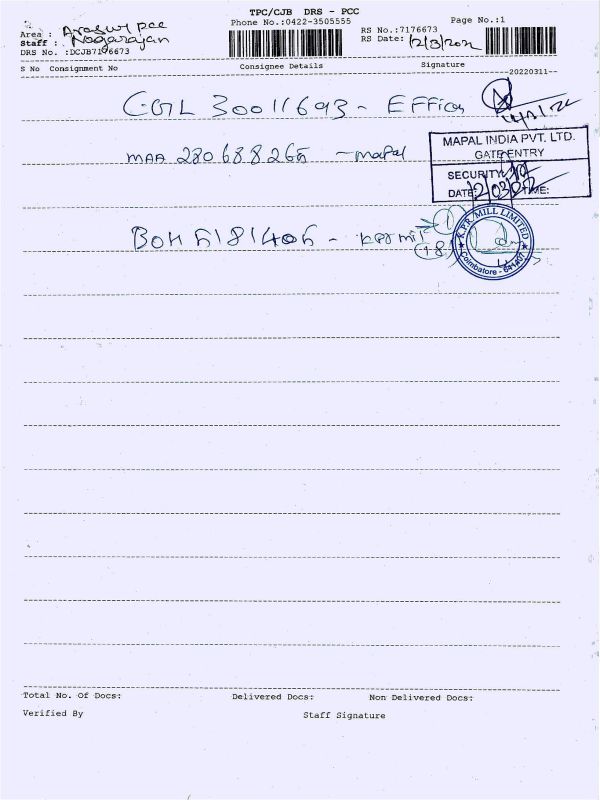 TPC/CJB DRS - PCC
Phone No.:0422-3505555
Page No.:1
Area : Arasur pcc
Staff : Nagarajan
DRS No. :DCJB7176673
RS No.:7176673
RS Date: 12/3/2022
S No Consignment No Consignee Details Signature
--20220311--
CGL 30011693 - Effica
MAA 280688265 - mapal
MAPAL INDIA PVT. LTD.
GATE ENTRY
SECURITY
DATE: 12/03/22 TIME:
BOM 5181405 - kpr mill
(1)
(+8)
K.P.R. MILL LIMITED
Coimbatore - 641407
Total No. Of Docs: Delivered Docs: Non Delivered Docs:
Verified By Staff Signature